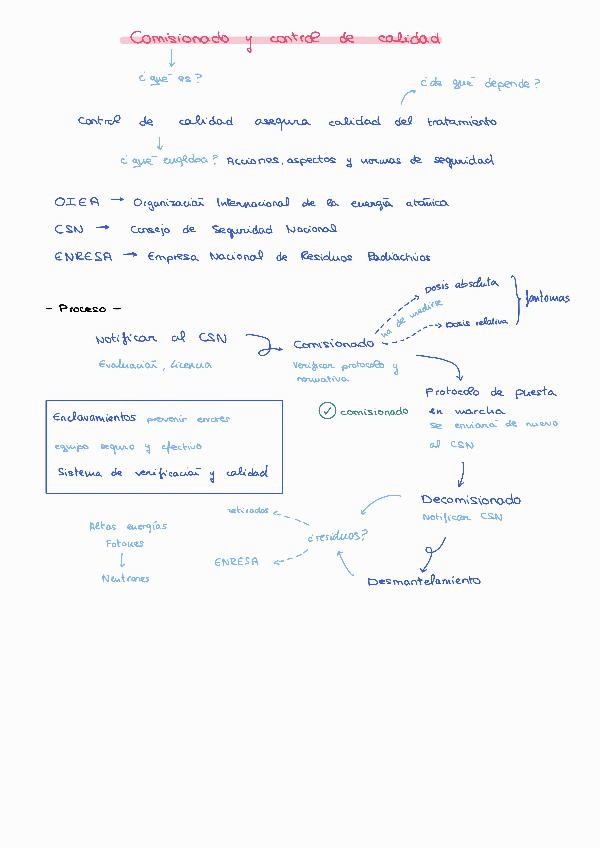 Comisionado y control de calidad
¿qué es?
¿de qué depende?
Control de calidad asegura calidad del tratamiento
¿qué engloba? Acciones, aspectos y normas de seguridad
OIEA → Organización Internacional de la energía atómica
CSN → Consejo de Seguridad Nacional
ENRESA → Empresa Nacional de Residuos Radiactivos
- Proceso -
Dosis absoluta
fantomas
ha de medirse
Dosis relativa
Notificar al CSN
Comisionado
Evaluación, Licencia
Verificar protocolo y
normativa
Protocolo de puesta
en marcha
se enviará de nuevo
al CSN
✓ comisionado
Enclavamientos prevenir errores
equipo seguro y efectivo
Sistema de verificación y calidad
Decomisionado
Notificar CSN
retirados
¿residuos?
ENRESA
Altas energías
Fotones
↓
Neutrones
Desmantelamiento